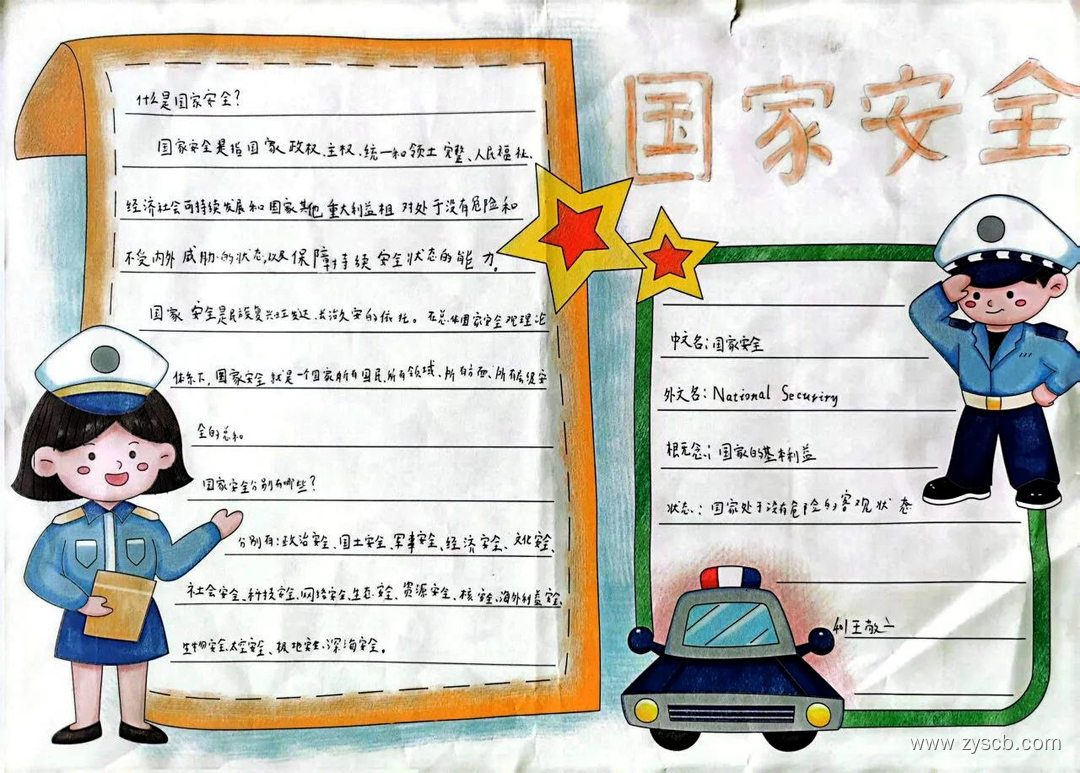 国家安全
什么是国家安全?
国家安全是指国家政权、主权、统一和领土完整、人民福祉、
经济社会可持续发展和国家其他重大利益相对处于没有危险和
不受内外威胁的状态,以及保障持续安全状态的能力。
国家安全是民族复兴 长治久安的依托。在总体国家安全观理论
体系下,国家安全就是一个国家所有国民、所有领域、所有方面、所有层级安
全的总和
国家安全分别有哪些?
分别有:政治安全、国土安全、军事安全、经济安全、文化安全、
社会安全、科技安全、网络安全、生态安全、资源安全、核安全、海外利益安全、
生物安全、太空安全、极地安全、深海安全。
中文名:国家安全
外文名: National Securiry
根概念:国家的基本利益
状态:国家处于没有危险的客观状态
www.zyscb.com